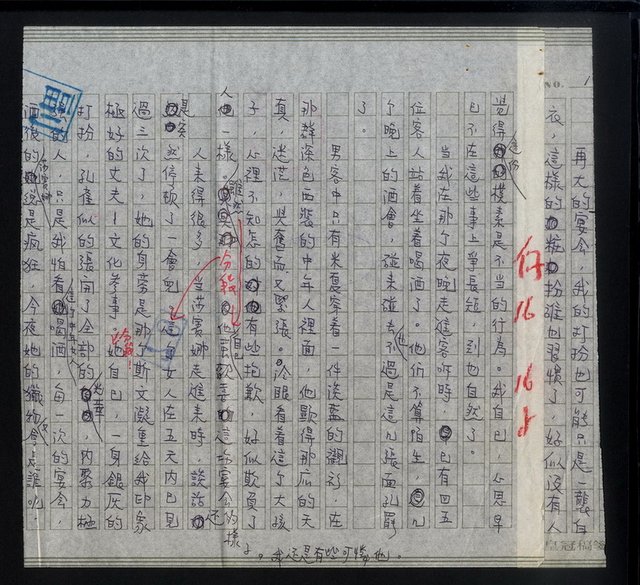 NO. 1
再大的宴會，我的打扮也可能只是一襲白
衣，這樣的粧扮誰也習慣了，好似沒有人
覺得這份樸素是不當的行為。我自己，心思早
已不在這些事上爭長短，到也自然了。
當我在那個夜晚走進客廳時，已有四五
位客人站着坐着喝酒了。他們不算陌生，幾
個晚上的酒會，碰來碰去也不過是這幾張面孔罷
了。
男客中只有米蓋穿着一件淡藍的襯衫，在
那群深色西裝的中年人裡面，他顯得那麼的天
真，迷茫，興奮而又緊張。冷眼看着這個大孩
子，心裡不知怎的有些抱歉，好似欺負了
人一樣。
，我還是有些可憐他。
人來得很多，當芬蜜娜走進來時，談話
突然停頓了一會兒，這個女人在五天內已見
過三次了，她的身旁是那個斯文凝重給我印象
極好的丈夫－文化參事。她自己，一身銀灰的
打扮，孔雀似的張開了全部的光華，內聚力極
的人，只是我怕看喝酒，每一次的宴會，
酒後的她總是瘋狂，今夜她的獵物會是誰呢，
皇冠稿